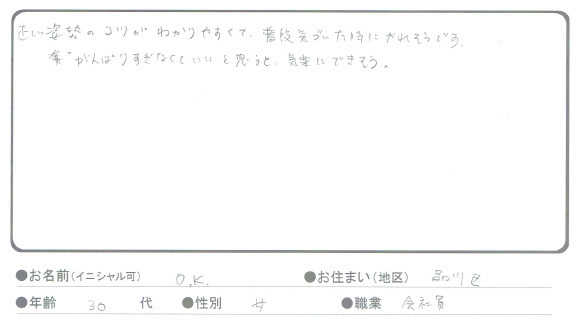 正しい姿勢のコツがわかりやすくて、普段気づいた時にやれそうです。
がんばりすぎなくていいと思うと、気楽にできそう。
●お名前(イニシャル可) O.K. ●お住まい(地区) 品川区
●年齢 30 代 ●性別 女 ●職業 会社員